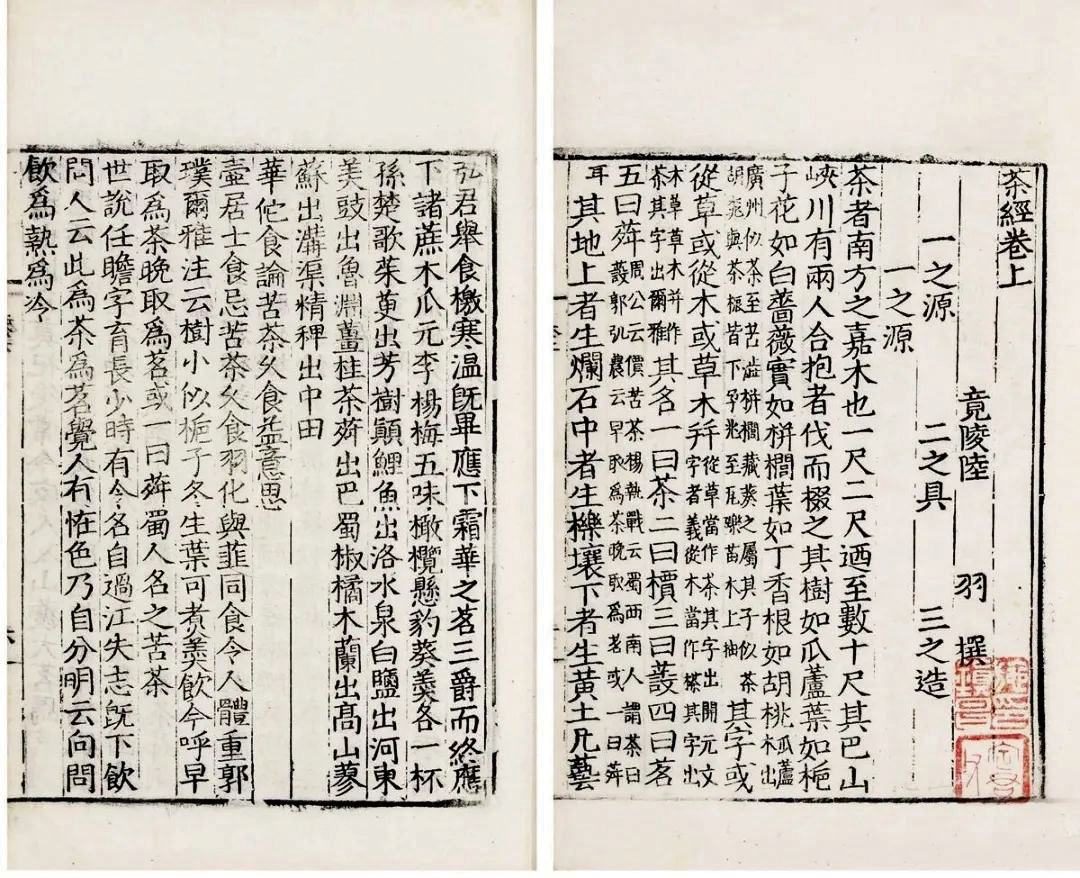 茶經卷上
竟陵陸 羽 撰
一之源 二之具 三之造
一之源
茶者南方之嘉木也一尺二尺迺至數十尺其巴山
峽川有兩人合抱者伐而掇之其樹如瓜蘆葉如梔
子花如白薔薇實如栟櫚葉如丁香根如胡桃瓜蘆木出
廣州似茶至苦澁栟櫚藏葵之屬其子似茶胡桃與茶根皆下孕兆至瓦礫苗木上抽其字或
從草或從木或草木并從草當作茶其字出開元文字者義從木當作搽其字出
木草草木并作荼其字出爾雅其名一曰茶二曰檟三曰蔎四曰茗
五曰荈周公云檟苦荼楊執戟云蜀西南人謂茶曰蔎郭弘農云早取為茶晚取為茗或一曰荈
耳其地上者生爛石中者生櫟壤下者生黃土凡藝
弘君舉食檄寒温既畢應下霜華之茗三爵而終應
下諸蔗木瓜元李楊梅五味橄欖懸豹葵羹各一杯
孫楚歌茱萸出芳樹顛鯉魚出洛水泉白鹽出河東
美豉出魯淵薑桂茶荈出巴蜀椒橘木蘭出髙山蓼
蘇出溝渠精稗出中田
華佗食論苦茶久食益意思
壺居士食忌苦茶久食羽化與韮同食令人體重郭
璞爾雅注云樹小似梔子冬生葉可煮羹飲今呼早
取為茶晚取為茗或一曰荈蜀人名之苦茶
世說任瞻字育長少時有令名自過江失志既下飲
問人云此為茶為茗覺人有怪色乃自分明云向問
飲為熱為冷